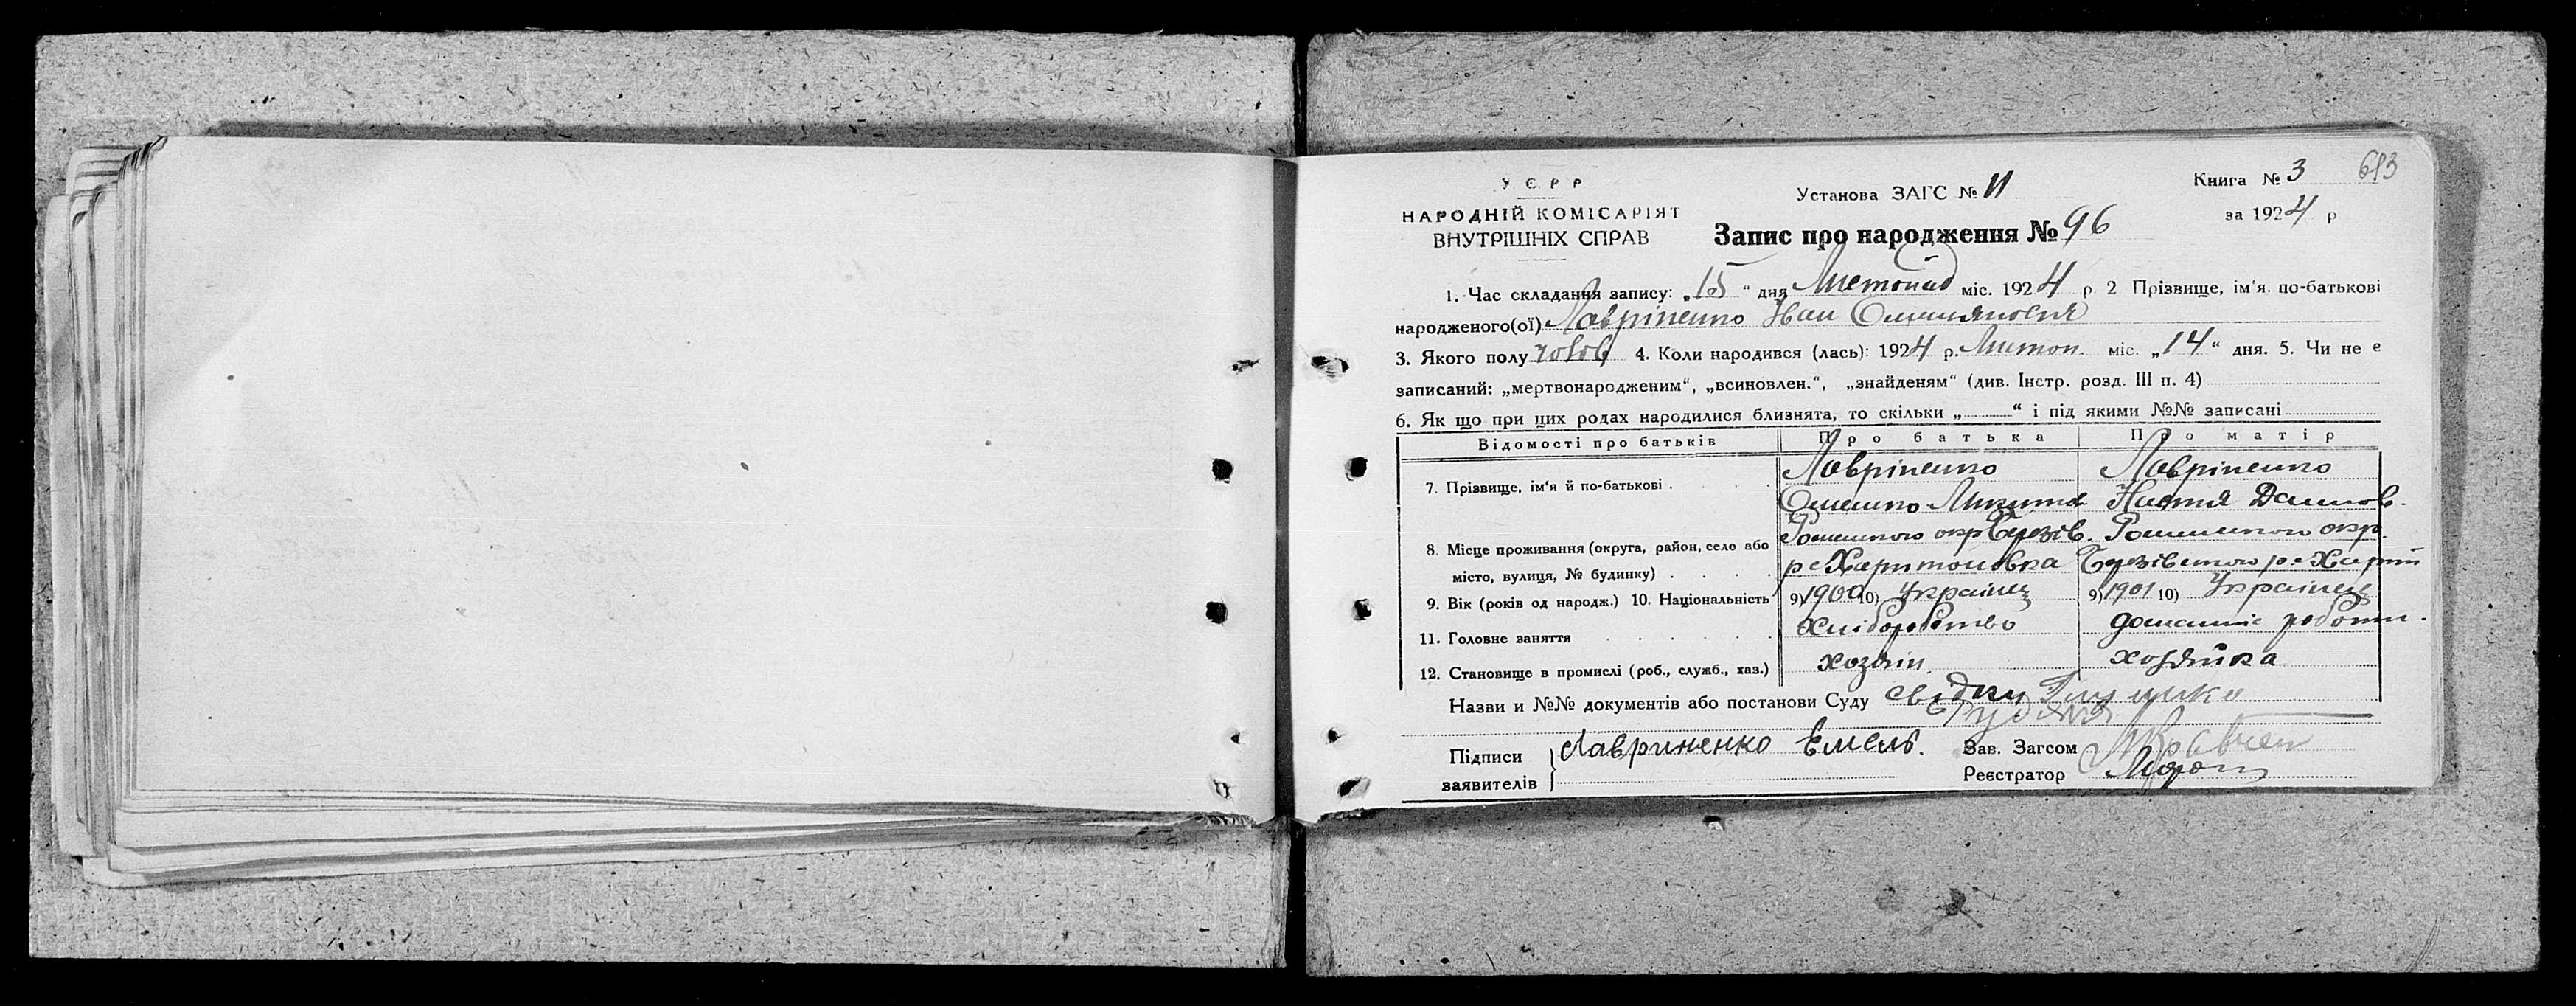 У Є Р Р
НАРОДНІЙ КОМІСАРІЯТ
ВНУТРІШНІХ СПРАВ
Установа ЗАГС № 11
Запис про народження № 96
Книга № 3 693
за 1924 р
1. Час складання запису: „15“ дня Листопад міс. 1924 р 2 Прізвище, ім'я, по-батькові
народженого(ої) Лавріненко Иван Омелянович
3. Якого полу чолов 4. Коли народився (лась): 1924 р. Листоп. міс. „14“ дня. 5. Чи не є
записаний: „мертвонародженим“, „всиновлен.“, „знайденям“ (див. Інстр. розд. III п. 4)
6. Як що при цих родах народилися близнята, то скільки „ “ і під якими №№ записані
Відомості про батьків Про батька Про матір
7. Прізвище, ім'я й по-батькові . Лавріненко Лавріненко
Омелько Микита Настя Данилов.
Роменского окр Березів. Роменского окр.
8. Місце проживання (округа, район, село або
місто, вулиця, № будинку) . . . . р с Харитоновка Березівского р с Харит
9. Вік (років од народж.) 10. Національність 9) 1900 10) Українец 9) 1901 10) Українец
11. Головне заняття Хліборобство домашнє роботи.
12. Становище в промислі (роб., служб., хаз.) хозяін хозяйка
Назви и №№ документів або постанови Суду свідки
Підписи Лавриненко Емель. Зав. Загсом
заявителів Реєстратор